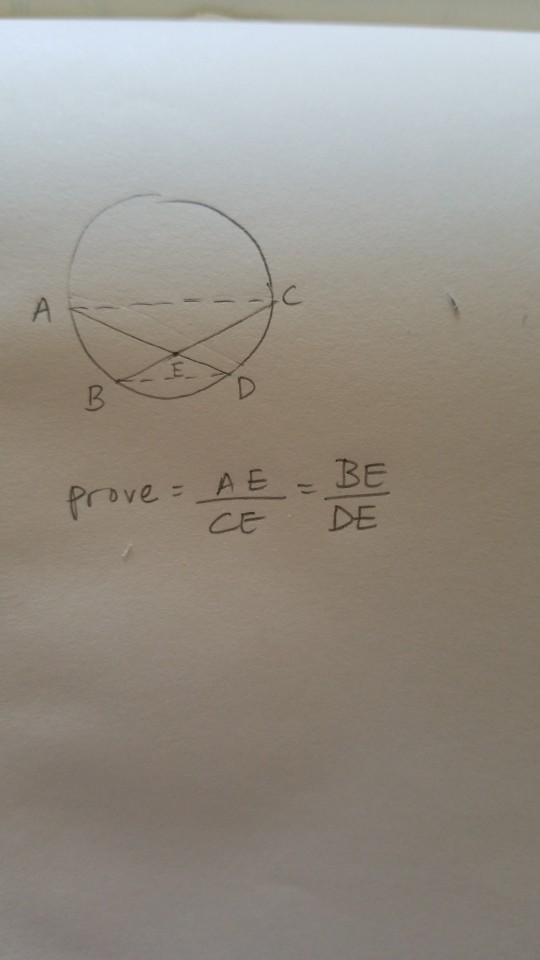 A C
E
B D
prove = AE/CE = BE/DE